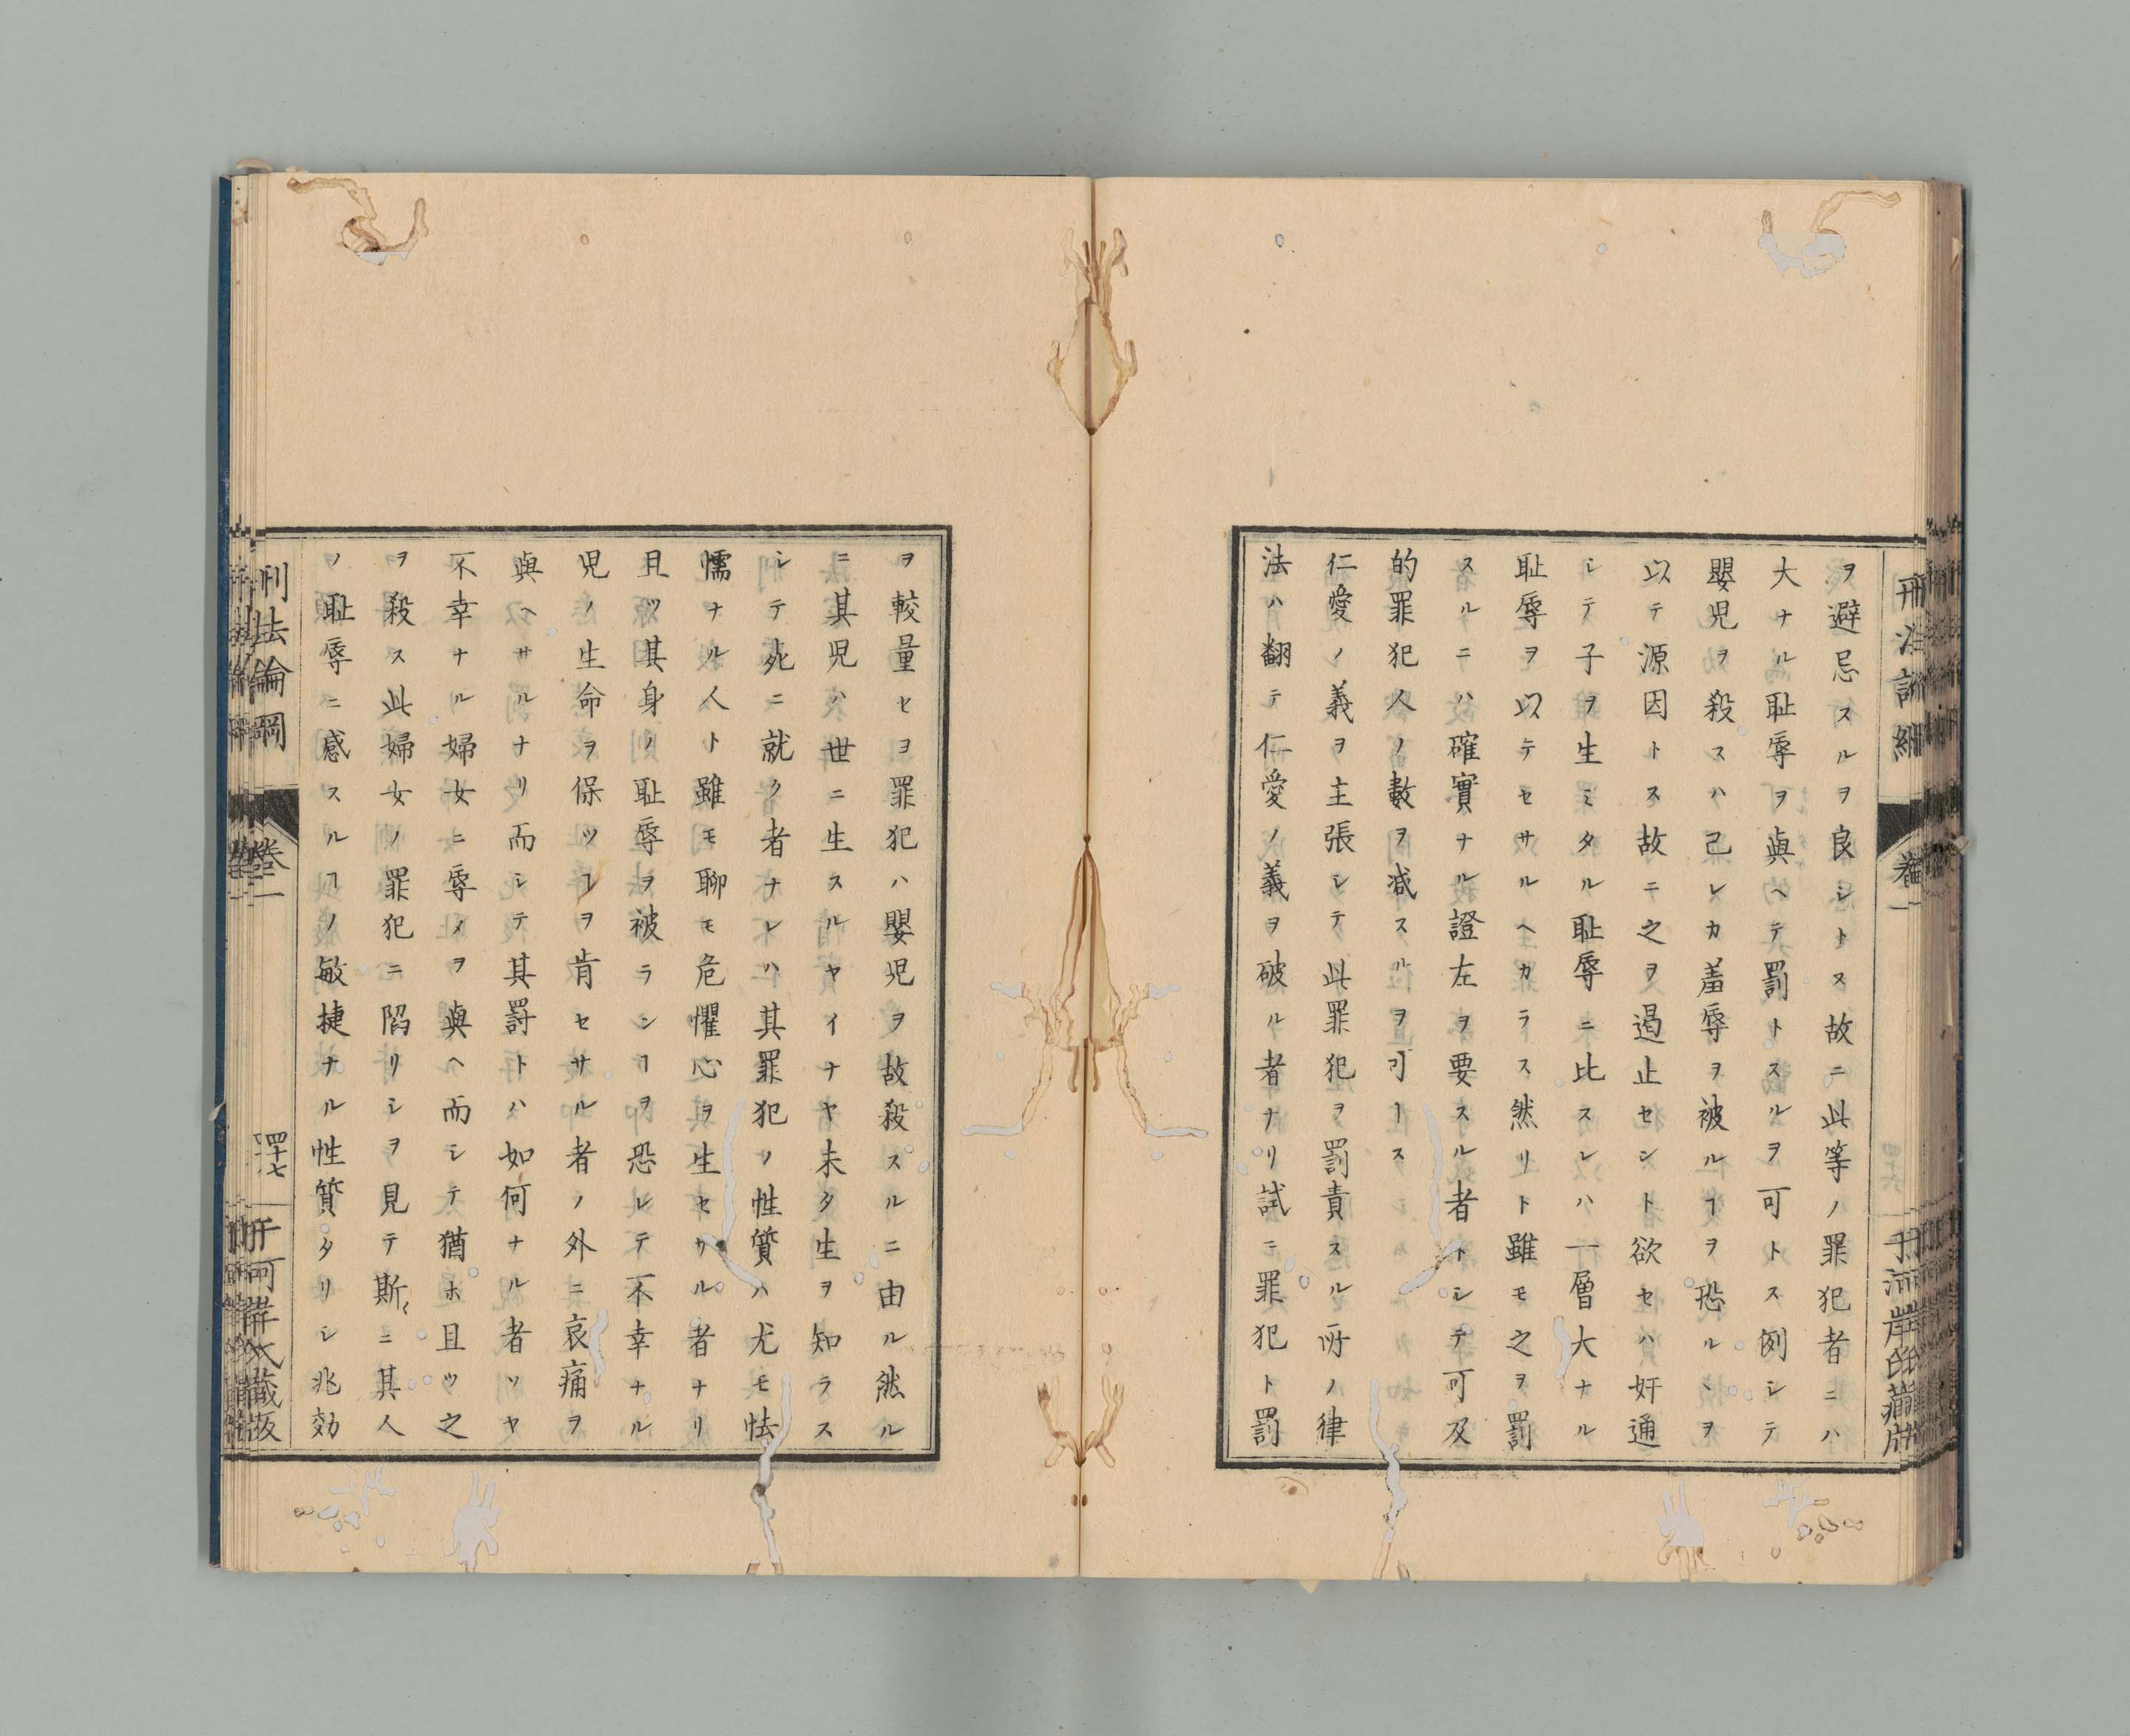 ヲ避忌スルヲ良シトス故ニ此等ノ罪犯者ニハ
大ナル耻辱ヲ與ヘテ罰トスルヲ可トス例シテ
嬰児ヲ殺スハ己レカ羞辱ヲ被ルヿヲ恐ルヽヲ
以テ源因トス故ニ之ヲ遏止セント欲セハ奸通
シテ子ヲ生ミタル耻辱ニ比スレハ一層大ナル
耻辱ヲ以テセサルヘカラス然リト雖モ之ヲ罰
スルニハ確實ナル證左ヲ要スル者トシテ可及
的罪犯人ノ數ヲ减スルヲ可トス
仁愛ノ義ヲ主張シテ此罪犯ヲ罰責スル所ノ律
法ハ翻テ仁愛ノ義ヲ破ル者ナリ試ニ罪犯ト罰
卷一
ヲ較量セヨ罪犯ハ嬰児ヲ故殺スルニ由ル然ル
ニ其児ハ世ニ生スルヤイナヤ未タ生ヲ知ラス
シテ死ニ就ク者ナレハ其罪犯ノ性質ハ尤モ怯
懦ナル人ト雖モ聊モ危懼心ヲ生セサル者ナリ
且ツ其身ノ耻辱ヲ被ラシヿヲ恐レテ不幸ナル
児ノ生命ヲ保ツヿヲ肯セサル者ノ外ニ哀痛ヲ
與ヘサルナリ而シテ其罸トハ如何ナル者ソヤ
不幸ナル婦女ニ辱メヲ與ヘ而シテ猶ホ且ツ之
ヲ殺ス此婦女ノ罪犯ニ陷リシヲ見テ斯クニ其人
ノ耻辱ニ感スルヿノ敏捷ナル性質タリシ兆効
刑法論綱
卷一
四十七
千河岸氏藏版